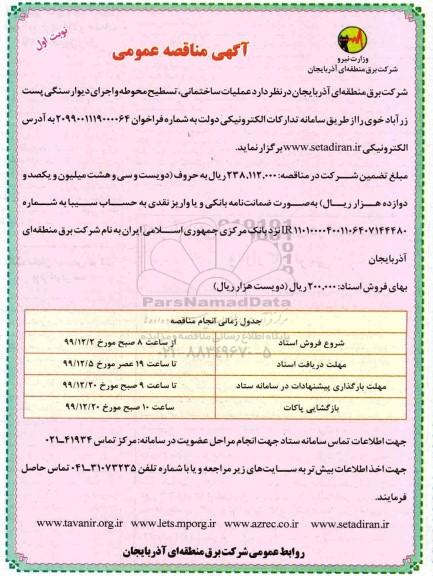 نوبت اول
وزارت نیرو
شرکت برق منطقه‌ای آذربایجان
آگهی مناقصه عمومی
شرکت برق منطقه‌ای آذربایجان در نظر دارد عملیات ساختمانی، تسطیح محوطه و اجرای دیوار سنگی پست
زرآباد خوی را از طریق سامانه تدارکات الکترونیکی دولت به شماره فراخوان ۲۰۹۹۰۰۱۱۱۹۰۰۰۰۶۴ به آدرس
الکترونیکی www.setadiran.ir برگزار نماید.
مبلغ تضمین شرکت در مناقصه: ۲۳۸,۱۱۲,۰۰۰ ریال به حروف (دویست و سی و هشت میلیون و یکصد و
دوازده هزار ریال) به‌صورت ضمانت‌نامه بانکی و یا واریز نقدی به حساب سیبا به شماره
IR ۱۱۰۱۰۰۰۰۴۰۰۱۱۰۶۴۰۷۱۴۴۴۸۰ نزد بانک مرکزی جمهوری اسلامی ایران به نام شرکت برق منطقه‌ای
آذربایجان
بهای فروش اسناد: ۲۰۰,۰۰۰ ریال (دویست هزار ریال)
ParsNamadData
پایگاه اطلاع رسانی مناقصه و مزایده
۰۲۱-۸۸۳۴۹۶۷۰-۵
جدول زمانی انجام مناقصه
شروع فروش اسناد از ساعت ۸ صبح مورخ ۹۹/۱۲/۲
مهلت دریافت اسناد تا ساعت ۱۹ عصر مورخ ۹۹/۱۲/۵
مهلت بارگذاری پیشنهادات در سامانه ستاد تا ساعت ۹ صبح مورخ ۹۹/۱۲/۲۰
بازگشایی پاکات ساعت ۱۰ صبح مورخ ۹۹/۱۲/۲۰
جهت اطلاعات تماس سامانه ستاد جهت انجام مراحل عضویت در سامانه: مرکز تماس ۴۱۹۳۴-۰۲۱
جهت اخذ اطلاعات بیش‌تر به سایت‌های زیر مراجعه و یا با شماره تلفن ۳۱۰۷۳۲۳۵-۰۴۱ تماس حاصل
فرمایند.
www.tavanir.org.ir www.lets.mporg.ir www.azrec.co.ir www.setadiran.ir
روابط عمومی شرکت برق منطقه‌ای آذربایجان